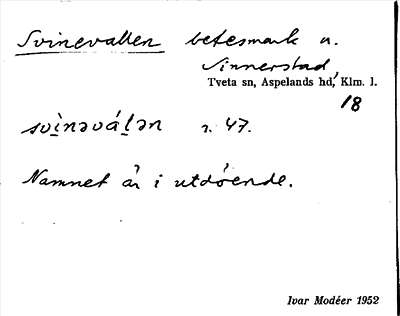 Svinevallen betesmark u.
Sinnerstad
Tveta sn, Aspelands hd, Klm. l.
18
svìnəválən r. 47.
Namnet är i utdöende.
Ivar Modéer 1952